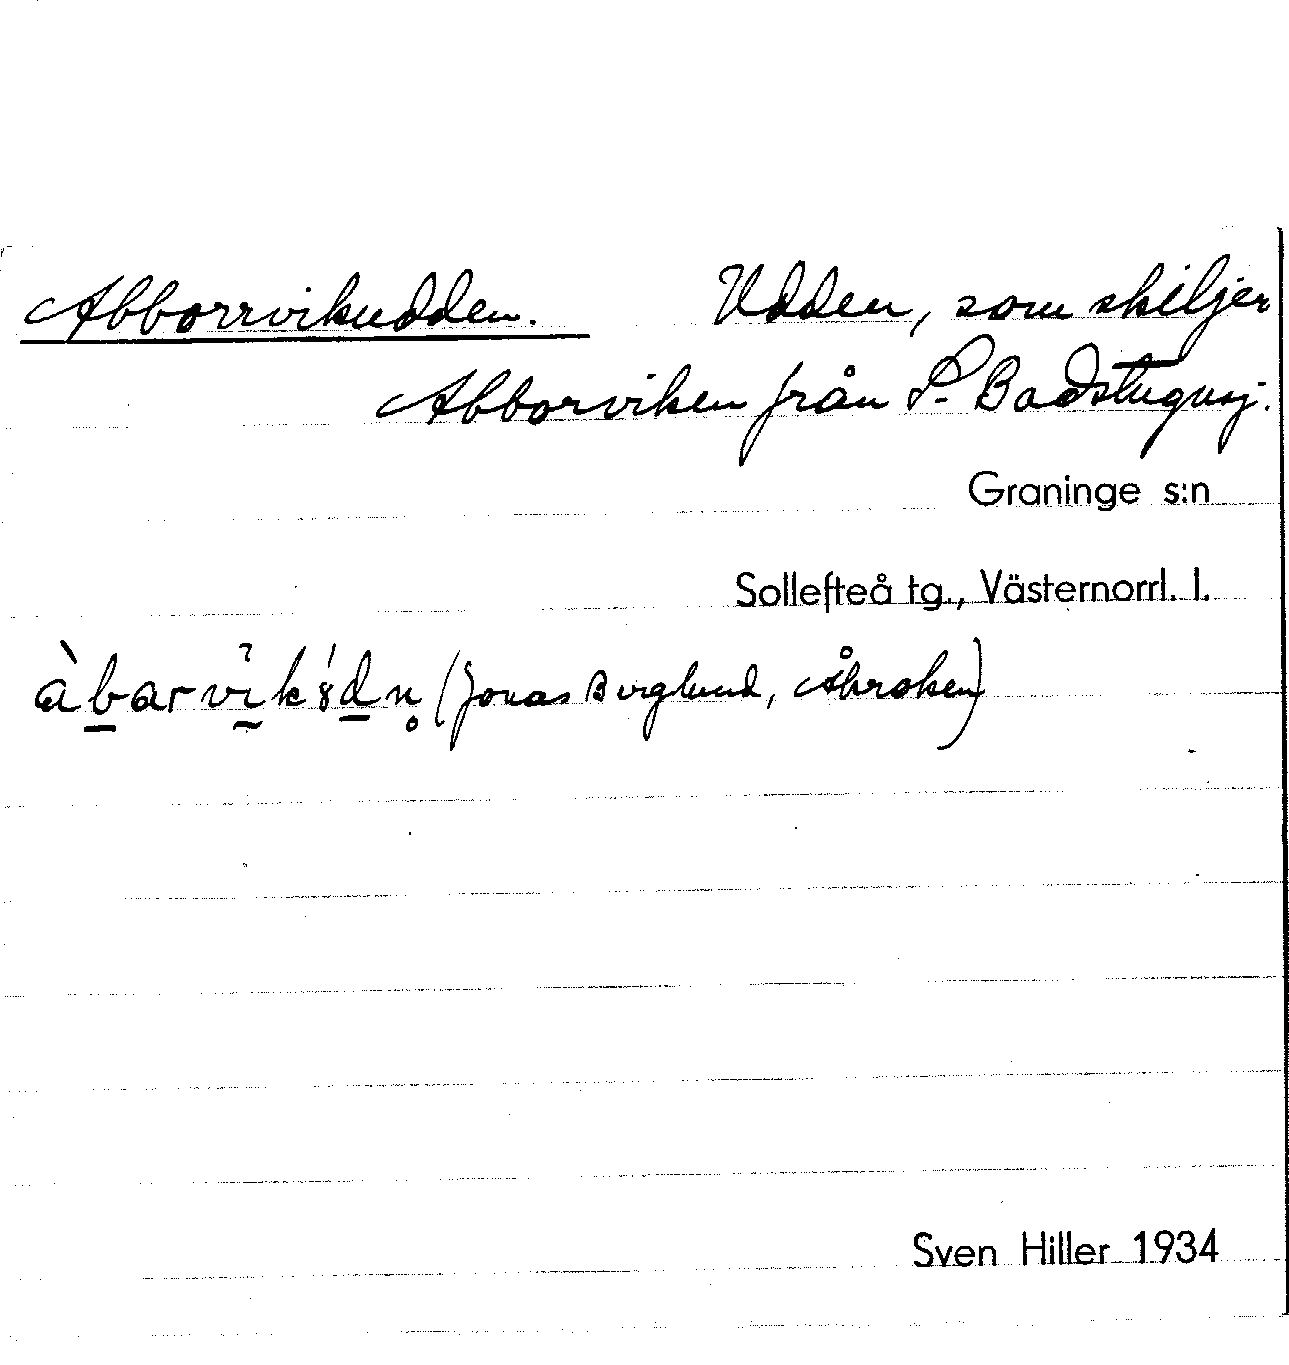 Abborrvikudden. Udden, som skiljer
Abborviken från S. Badstugusj.
Graninge s:n
Sollefteå tg., Västernorrl. l.
(Jonas Berglund, Åkroken)
Sven Hiller 1934